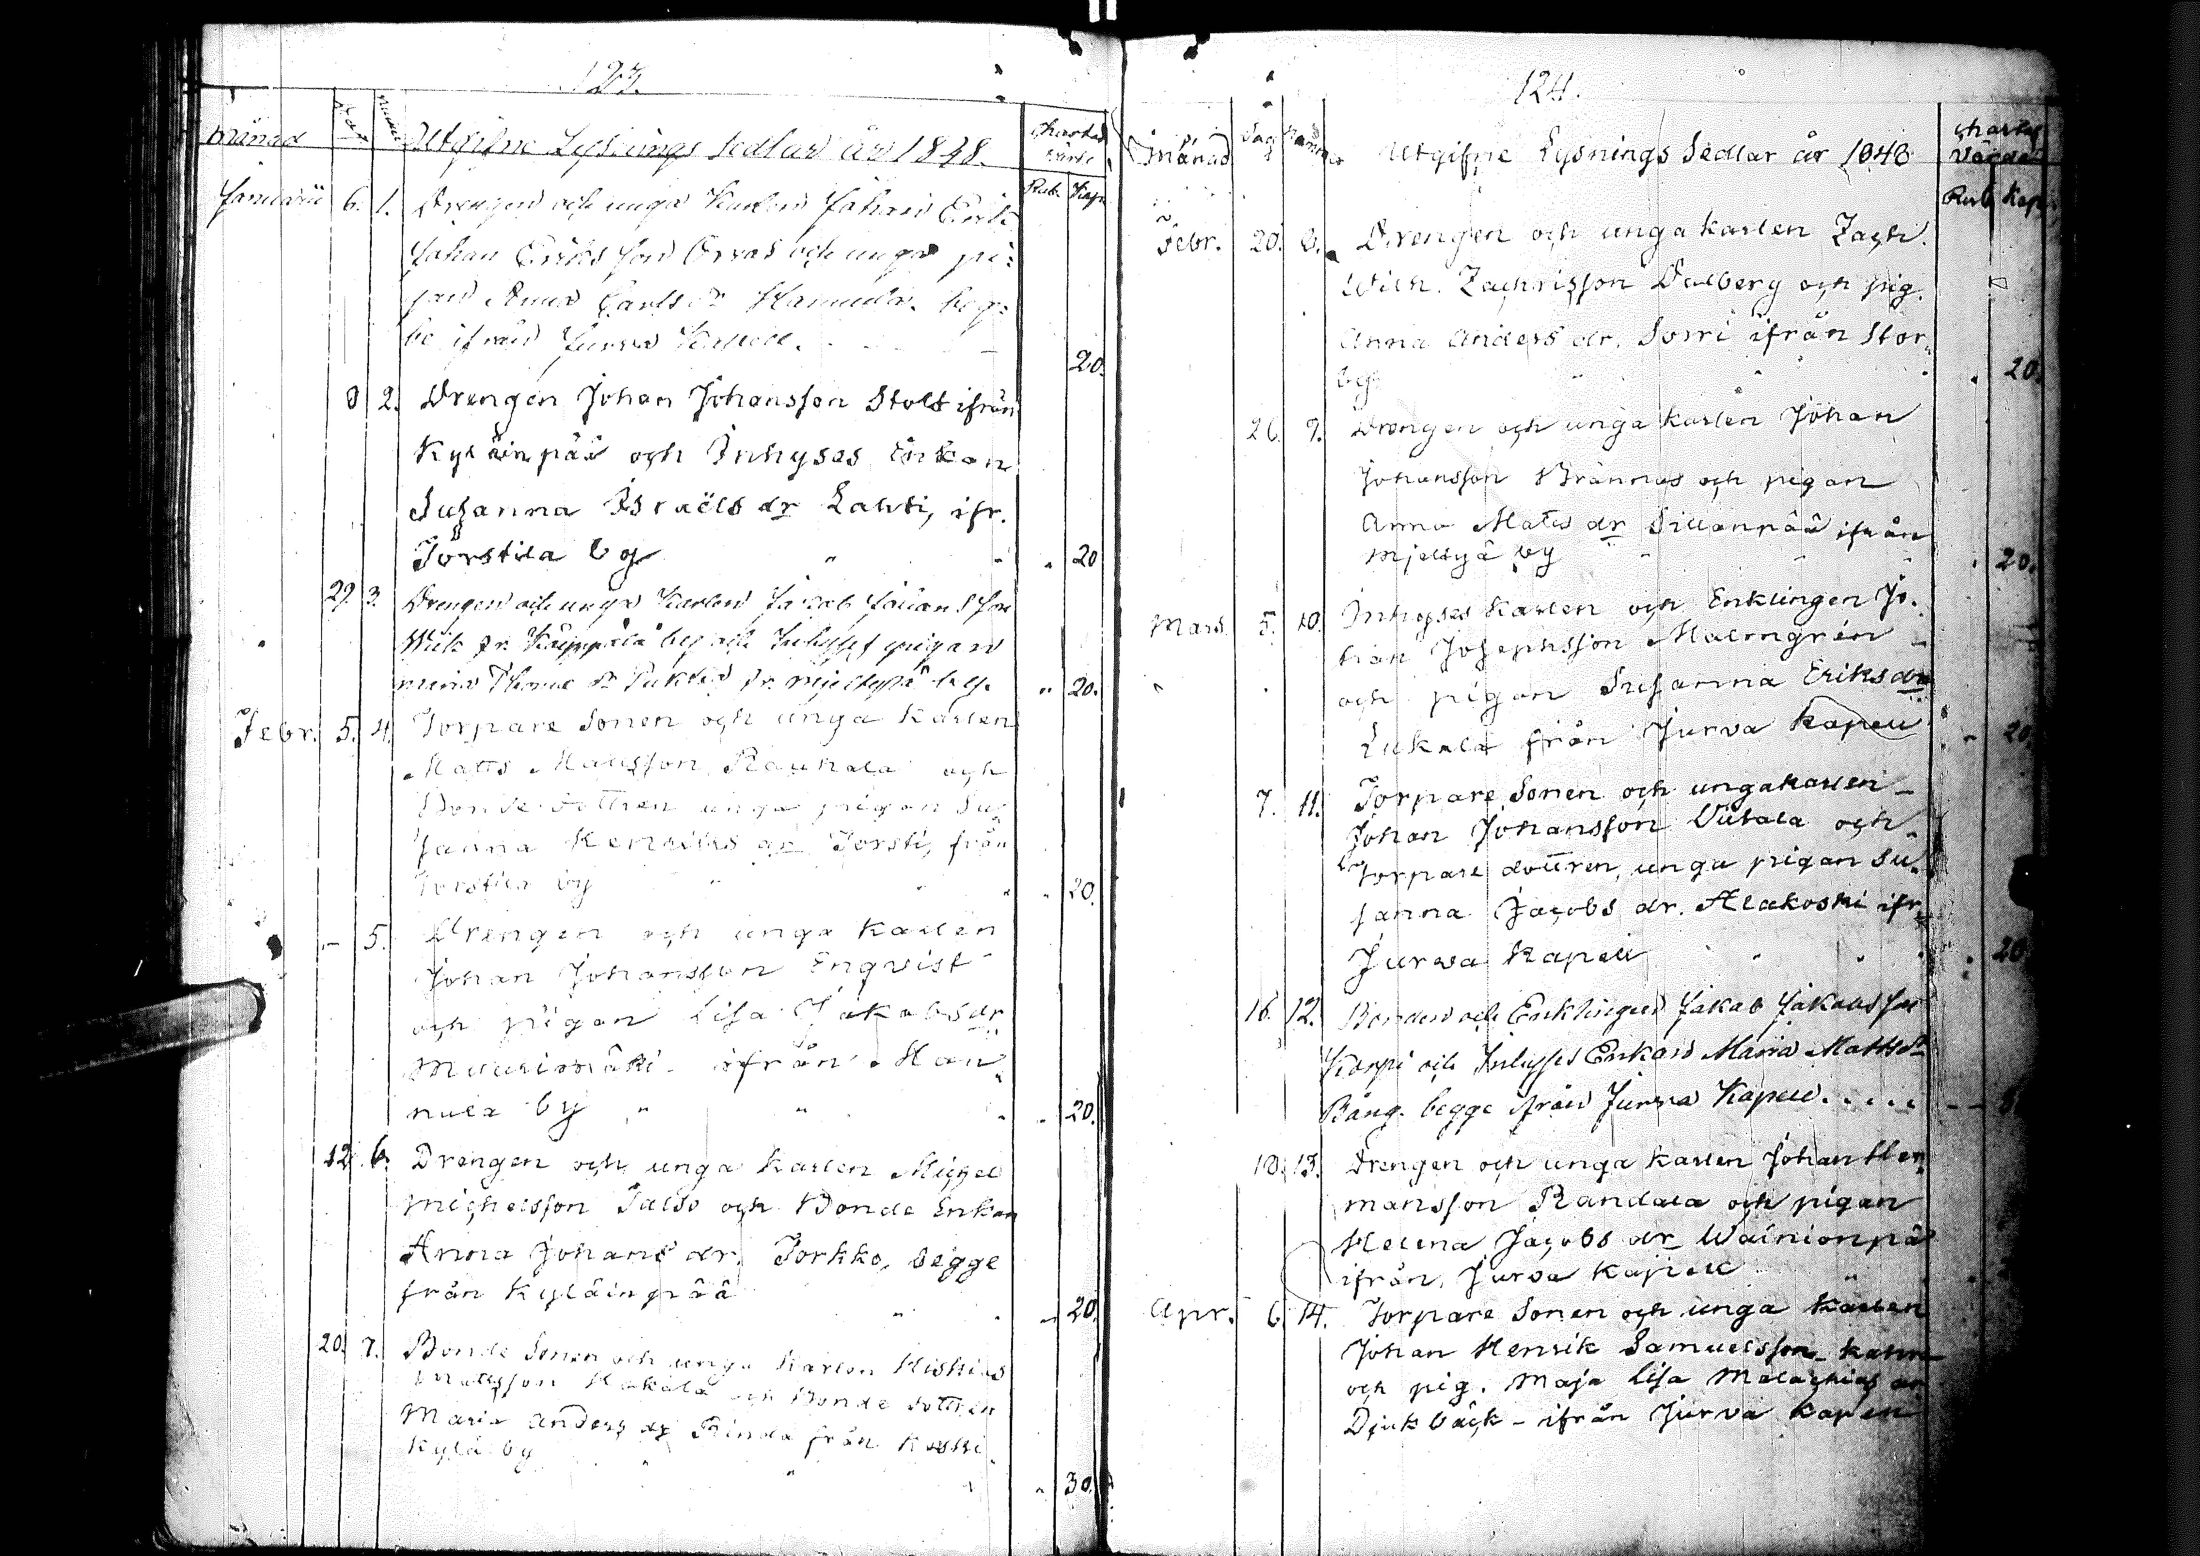 123.
Månad Dag Numer Utgifne Lysnings Sedlar år 1848. Charta värde
Rub. Kop.
Januarii 6. 1. Drengen och unga Karlen Johan Erik
Johan Eriksson Orvas och unga pi-
gan Anna Carls dr Hannula. beg-
be ifrån Jurva Kapell. 20.
8 2. Drengen Johan Johansson Stolt ifrån
Kyläinpää och Inhyses Enkan
Susanna Israëls dr Lahti, ifr.
Torstila by " " 20
29. 3. Drengen och unga Karlen Jakob Johansson
Wik fr. Käyppälä by och Inhyses pigan
Maria Thomæ dr fr. Mieltyä by. " 20.
Febr. 5. 4. Torpare Sonen och unga Karlen
Matts Mattsson Rauhala och
Bonde dottren unga pigan Su-
sanna Henriks dr Torsti, från
Torstila by " " " 20.
— 5. Drengen och unga Karlen
Johan Johansson Enqvist
och pigan Lisa Jakobs dr
Muurimäki ifrån Han-
nula by " " " 20.
12. 6. Drengen och unga Karlen Michel
Michelsson Talso och Bonde Enkan
Anna Johans dr. Torkko, begge
från Kyläinpää " 20.
20. 7. Bonde Sonen och unga Karlen Hiskias
Mattsson Hakala och Bonde dottren
Maria Anders dr Rinda från Koski
Kylä by " " " 30.
124.
Månad Dag Nummer Utgifne Lysnings Sedlar år 1848 Charta Värde
Rub. Kop.
Febr. 20. 8. Drengen och unga Karlen Zach.
Wilh. Zachrisson Dalberg och pig.
Anna Anders dr. Sorri ifrån Stor-
by " " " 20.
26. 9. Drengen och unga Karlen Johan
Johansson Brännas och pigan
Anna Mats dr Sillanpää ifrån
Mjeltyä by " " 20.
Mars 5. 10. Inhyses Karlen och Enklingen Jo-
han Josephsson Malmgrén
och pigan Susanna Eriks dr
Lukala från Jurva Kapell 20.
7. 11. Torpare Sonen och unga Karlen
Johan Johansson Viitala och
Torpare dottren, unga pigan Su-
sanna Jacobs dr. Alakoski ifr.
Jurva Kapell " " 20.
16. 12. Bonden och Enklingen Jakob Jakobsson
Karpi och Inhysses Enkan Maria Matts dr
Bång. begge ifrån Jurva Kapell.....
18. 13. Drengen och unga Karlen Johan Her-
mansson Randala och pigan
Helena Jacobs dr Wainionpä
ifrån Jurva Kapell
Apr. 6. 14. Torpare Sonen och unga Karlen
Johan Henrik Samuelsson
och pig. Maja Lisa Malachias dr
Djukbäck - ifrån Jurva Kapell